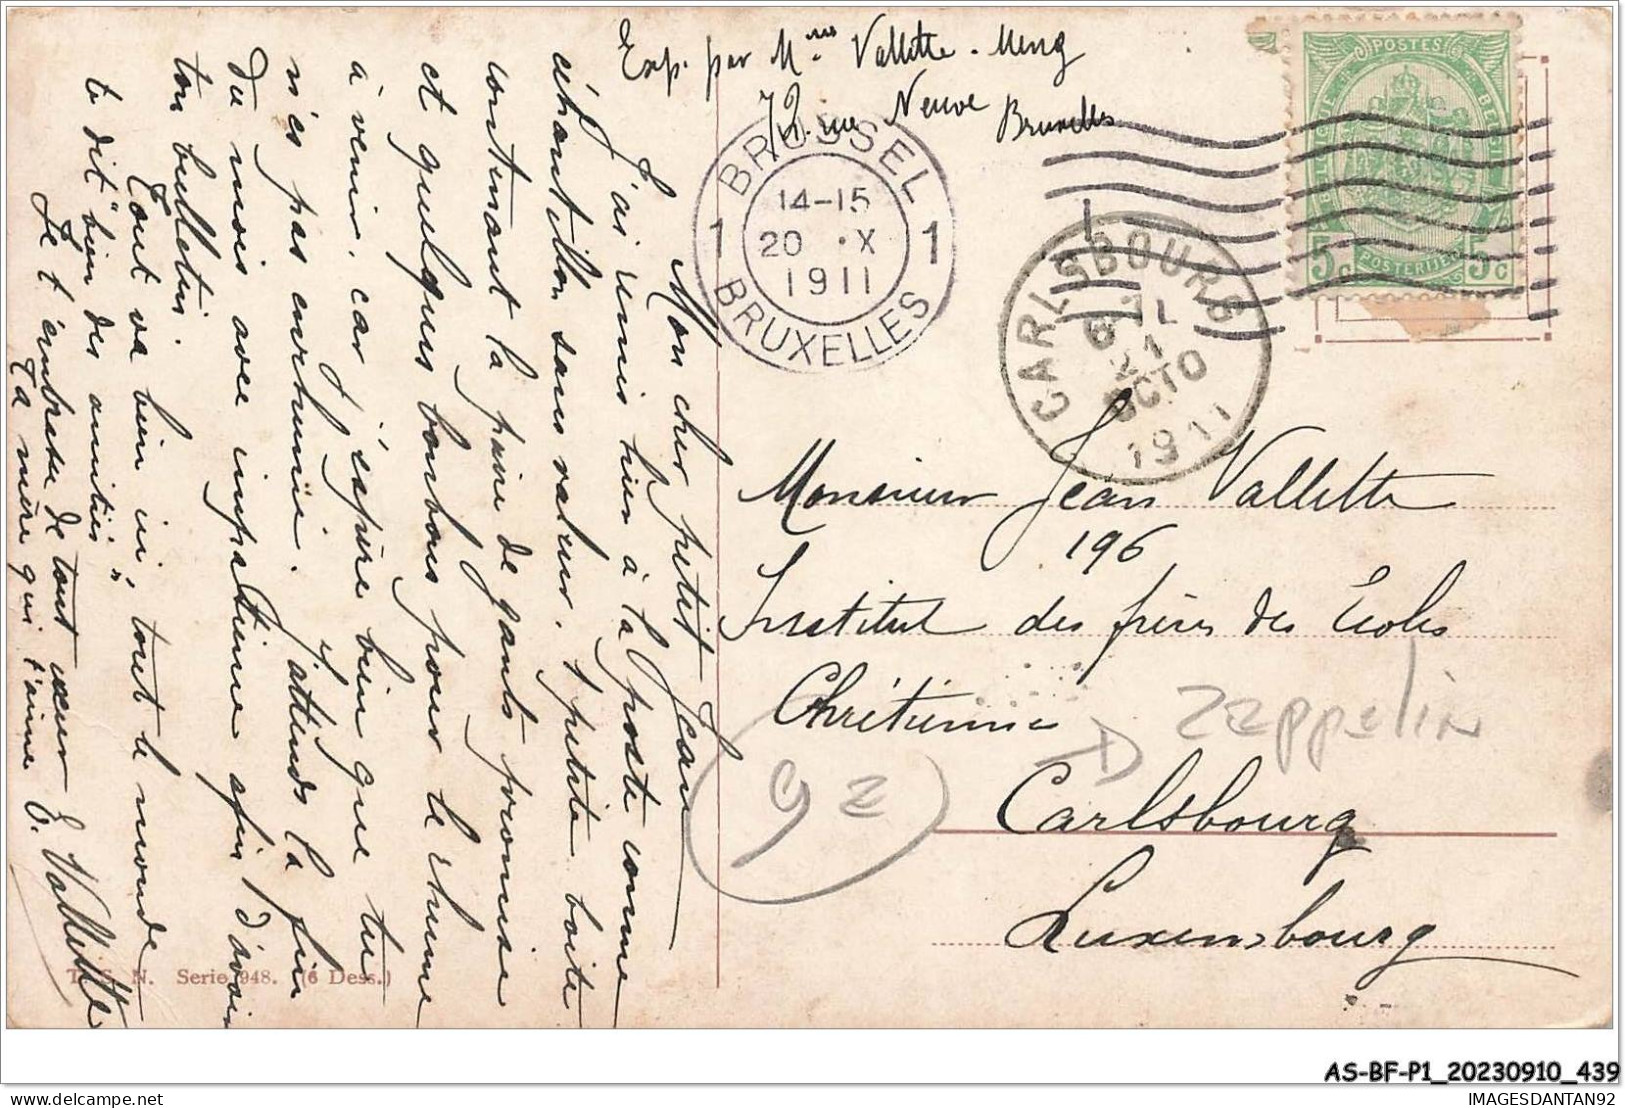 Exp. par Mme Vallette-Meng
72. rue Neuve
Bruxelles
POSTES
BELGIQUE
BELGIE
POSTERIJEN
5c 5c
BRUSSEL
14-15
1 20 ·X 1
1911
BRUXELLES
CARLSBOURG
21
OCTO
1911
Mon cher petit Jean
J'ai remis hier à la poste comme
échantillon sans valeur, 1 petite boite
contenant la paire de gants promise
et quelques bonbons pour le rhume
à venir, car j'espère bien que tu
n'es pas enrhumé. J'attends la fin
du mois avec impatience afin d'avoir
ton bulletin.
Tout va bien ici, tout le monde
te dit "bien des amitiés"
Je t'embrasse de tout cœur
Ta mère qui t'aime
E. Vallette
Monsieur Jean Vallette
196
Institut des frères des Ecoles
Chrétiennes
Carlsbourg
Luxembourg
Zeppelin
92
T. S. N. Serie 948. (6 Dess.)
AS-BF-P1_20230910_439
IMAGESDANTAN92